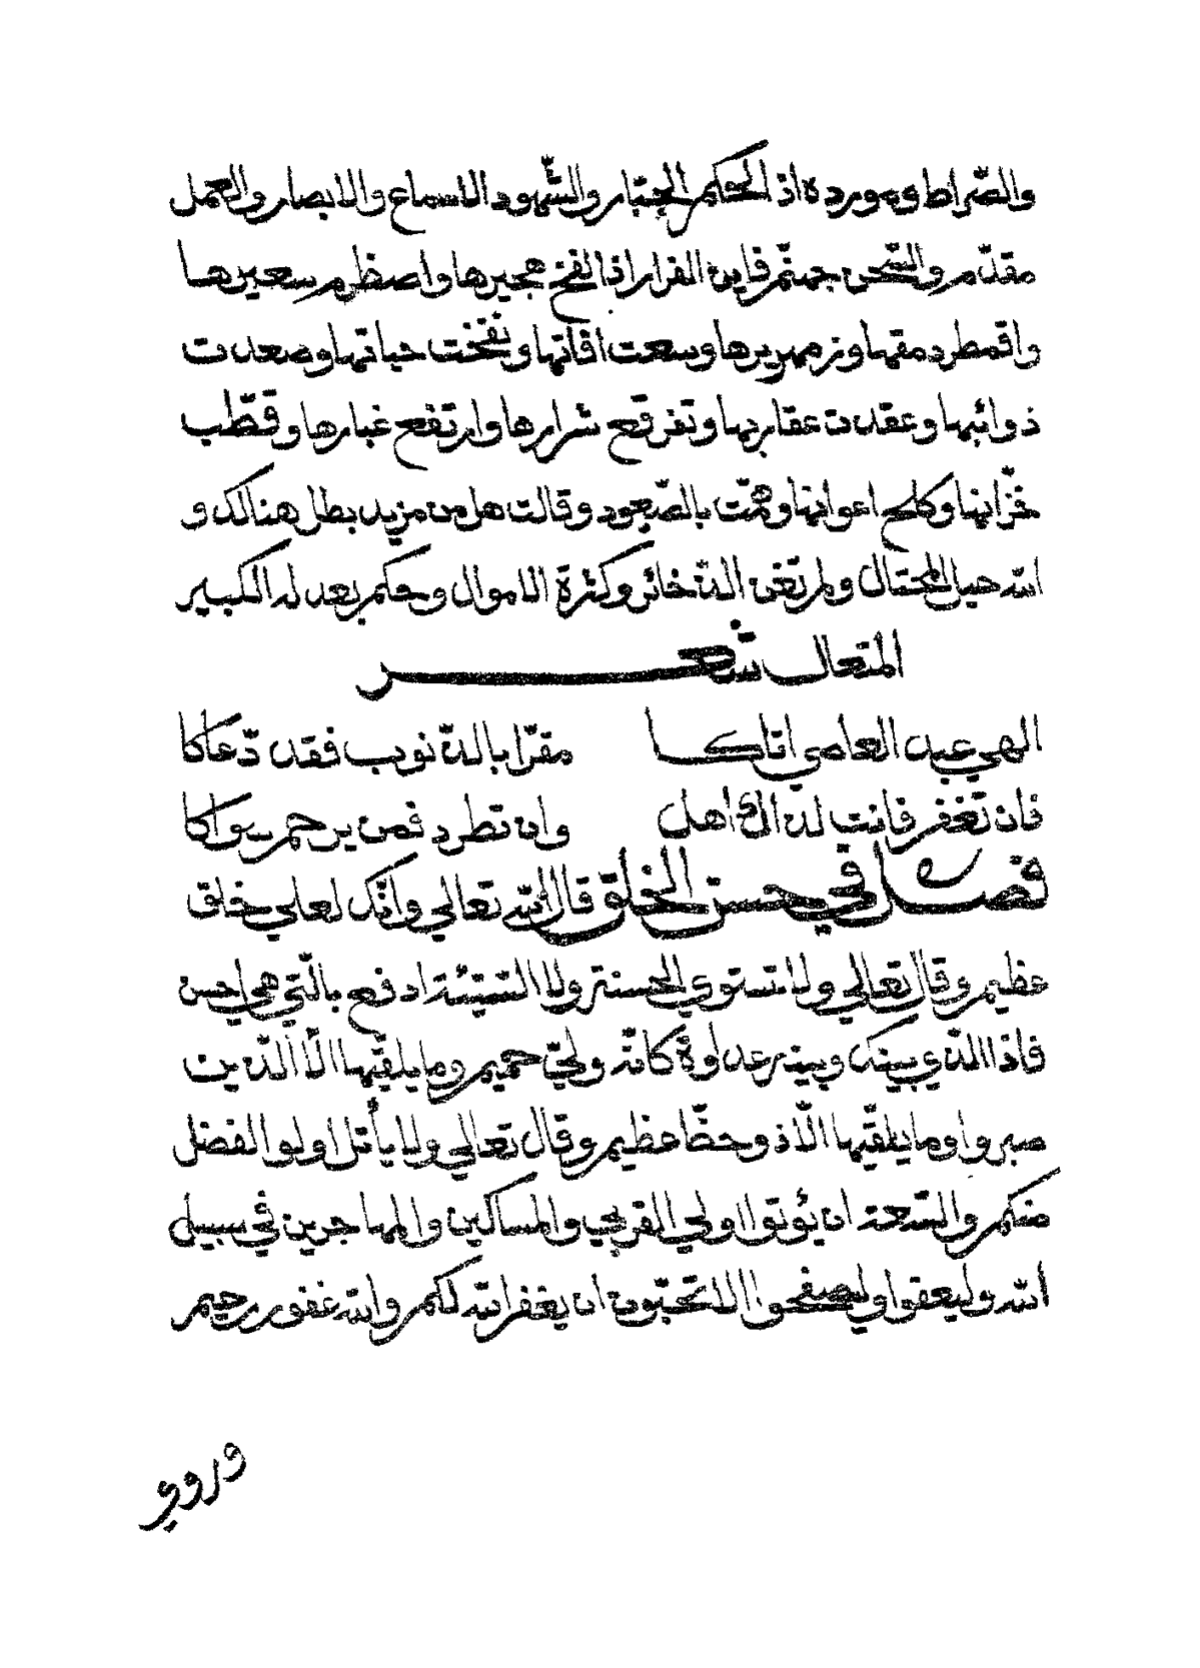 والصّراط وموردہ اذ الحكم الجبّار والشّهود الاسماع والابصار والعمل
مقدّم والسّجن جهنّم فاين الفرار اذا لفح هجيرها واضطرم سعيرها
واقمطر دمقها وزمهريرها وسعت افاتها ونفخت حياتها وصعدت
ذوائبها وعقدت عقاربها وتفرقع شرارها وارتفع غبارها وقطّب
خزّانها وكلح اعوانها وهمّت بالصّعود وقالت هل من مزيد بطل هنالك و
الله حيل المحتال ولم تغن الذّخائر وكثرة الاموال وحكم بعدله الكبير
المتعال شعر
الهي عبد العاصي اتاكا مقرّا بالذّنوب فقد دّعاكا
فان تغفر فانت لذالك اهل وان تطرد فمن يرحم سواكا
فصل في حسن الخلق قال الله تعالي وانّك لعلي خلق
عظيم وقال تعالي ولا تستوي الحسنة ولا السّيئة ادفع بالّتي هي احسن
فاذا الذّي بينك وبينه عداوة كانّه وليّ حميم وما يلقّيها الّا الّذين
صبروا وما يلقّيها الّا ذو حضّ عظيم وقال تعالي ولا يأتل اولوا الفضل
منكم والسّعة ان يؤتوا اولي القربي والمساكين والمهاجرين في سبيل
الله وليعفوا وليصفحوا الا تحبّون ان يغفر الله لكم والله غفور رحيم
وروي